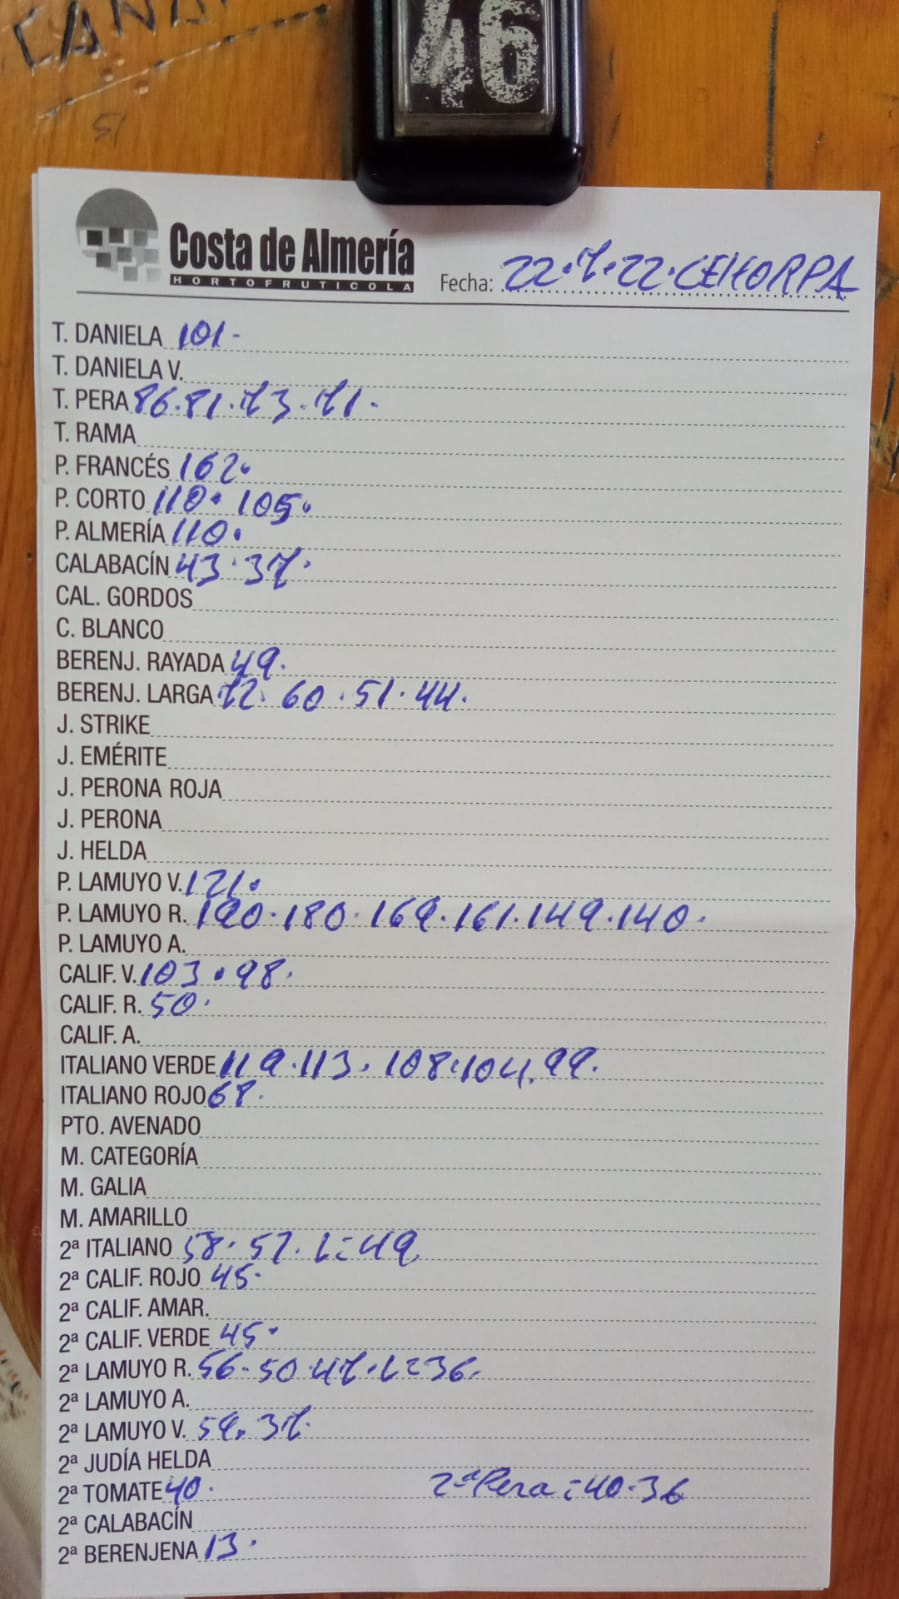 46
Costa de Almería
HORTOFRUTICOLA
Fecha: 22.7.22.CEHORPA
T. DANIELA 101.
T. DANIELA V.
T. PERA 86.81.73.71.
T. RAMA
P. FRANCÉS 162.
P. CORTO 110. 105.
P. ALMERÍA 110.
CALABACÍN 43.37.
CAL. GORDOS
C. BLANCO
BERENJ. RAYADA 49.
BERENJ. LARGA 72. 60.51.44.
J. STRIKE
J. EMÉRITE
J. PERONA ROJA
J. PERONA
J. HELDA
P. LAMUYO V. 121.
P. LAMUYO R. 190.180.169.161.149.140.
P. LAMUYO A.
CALIF. V. 103.98.
CALIF. R. 50.
CALIF. A.
ITALIANO VERDE 119.113.108.104.99.
ITALIANO ROJO 68.
PTO. AVENADO
M. CATEGORÍA
M. GALIA
M. AMARILLO
2ª ITALIANO 58.57. L=49.
2ª CALIF. ROJO 45.
2ª CALIF. AMAR.
2ª CALIF. VERDE 45.
2ª LAMUYO R. 56.50.47.L=36.
2ª LAMUYO A.
2ª LAMUYO V. 59.37.
2ª JUDÍA HELDA
2ª TOMATE 40. 2ª Pera=40.36
2ª CALABACÍN
2ª BERENJENA 13.